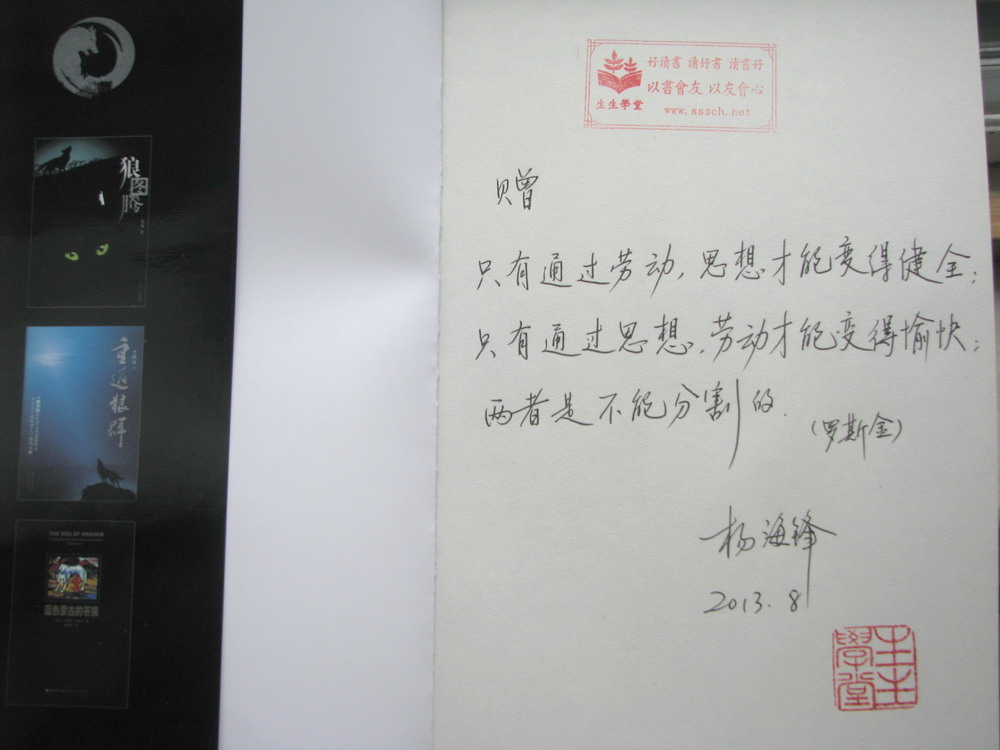 狼
图
腾
重返狼群
THE DOG OF HEAVEN
蓝色蒙古的苍狼
好讀書 讀好書 讀書好
以書會友 以友會心
生生學堂
www.sssch.net
赠
只有通过劳动,思想才能变得健全;
只有通过思想,劳动才能变得愉快;
两者是不能分割的.
(罗斯金)
杨海锋
2013.8
生生
學堂